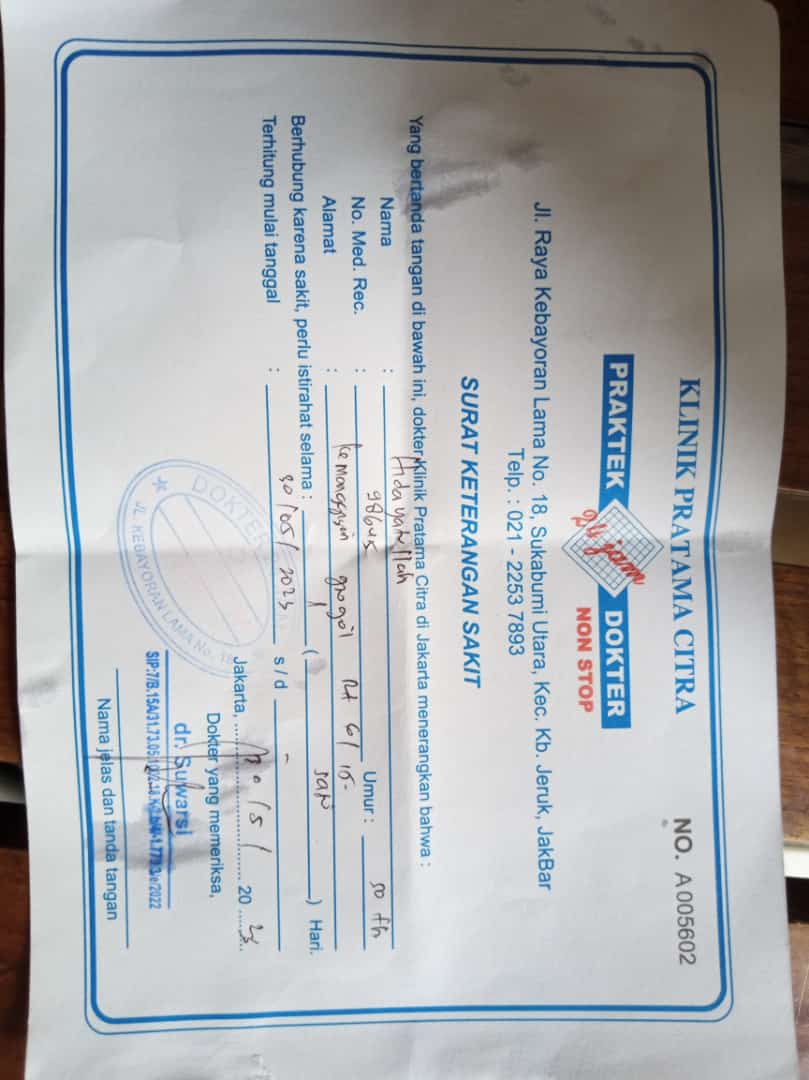 KLINIK PRATAMA CITRA
NO. A005602
PRAKTEK 24 jam DOKTER
NON STOP
Jl. Raya Kebayoran Lama No. 18, Sukabumi Utara, Kec. Kb. Jeruk, JakBar
Telp. : 021 - 2253 7893
SURAT KETERANGAN SAKIT
Yang bertanda tangan di bawah ini, dokter Klinik Pratama Citra di Jakarta menerangkan bahwa :
Nama : Hidayatullah
No. Med. Rec. : 98645 Umur : 50 th
Alamat : Kemanggisan grogol Rt 6/15
Berhubung karena sakit, perlu istirahat selama : 1 ( satu ) Hari.
Terhitung mulai tanggal : 30/05/2023 s/d -
Jakarta, 30/5/2023
Dokter yang memeriksa,
DOKTER
JL. KEBAYORAN LAMA No. 18
dr. Suwarsi
Nama jelas dan tanda tangan